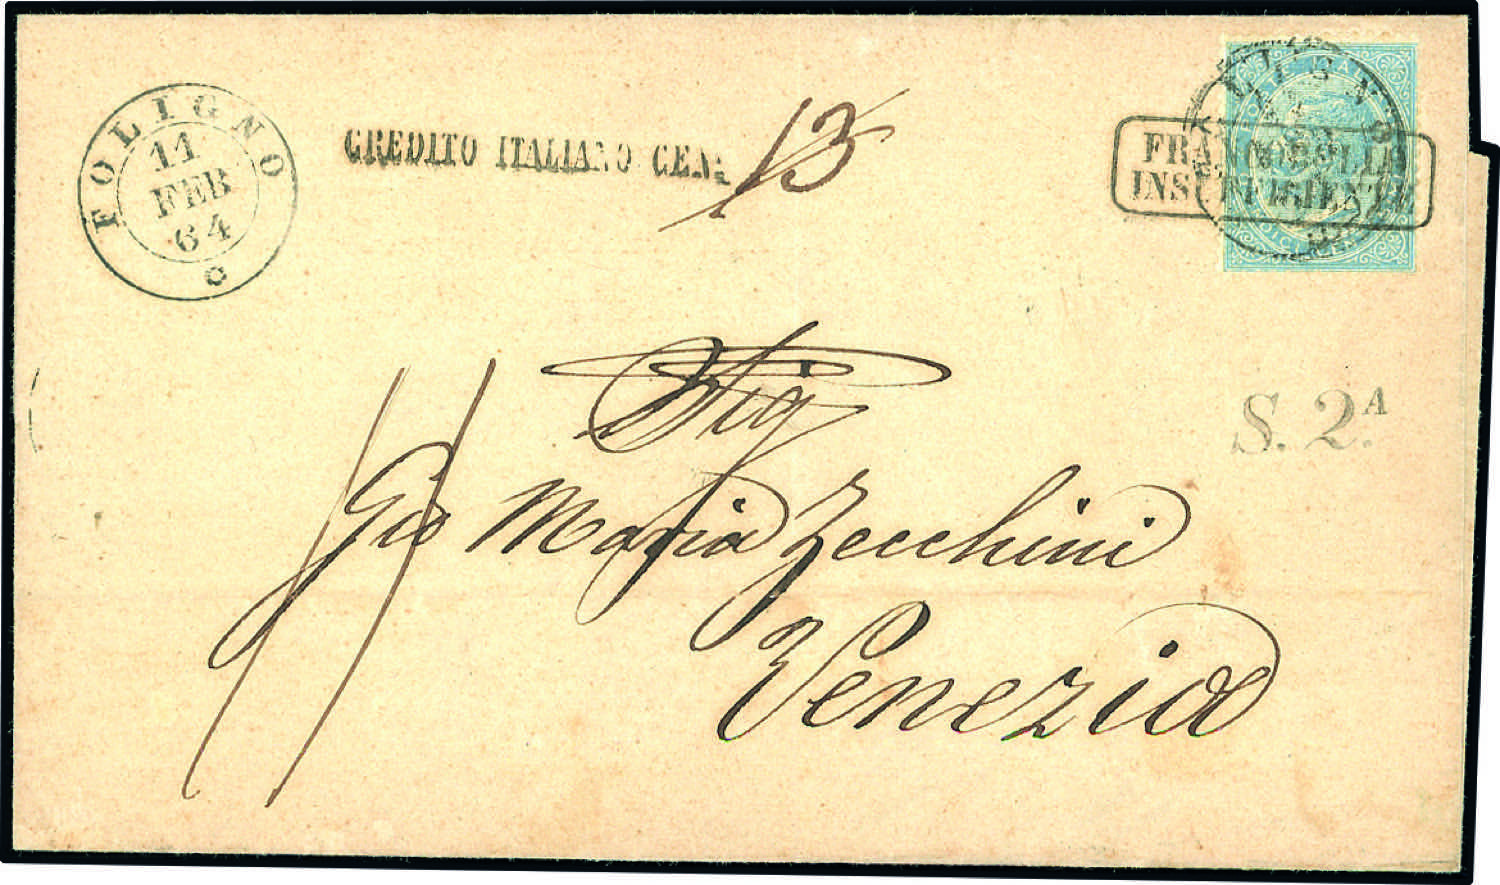 FOLIGNO
11
FEB
64
CREDITO ITALIANO CEN:
13
FRANCOBOLLI
INSUFFICIENTE
S. 2.A
Sig
Gio Maria Zecchini
Venezia